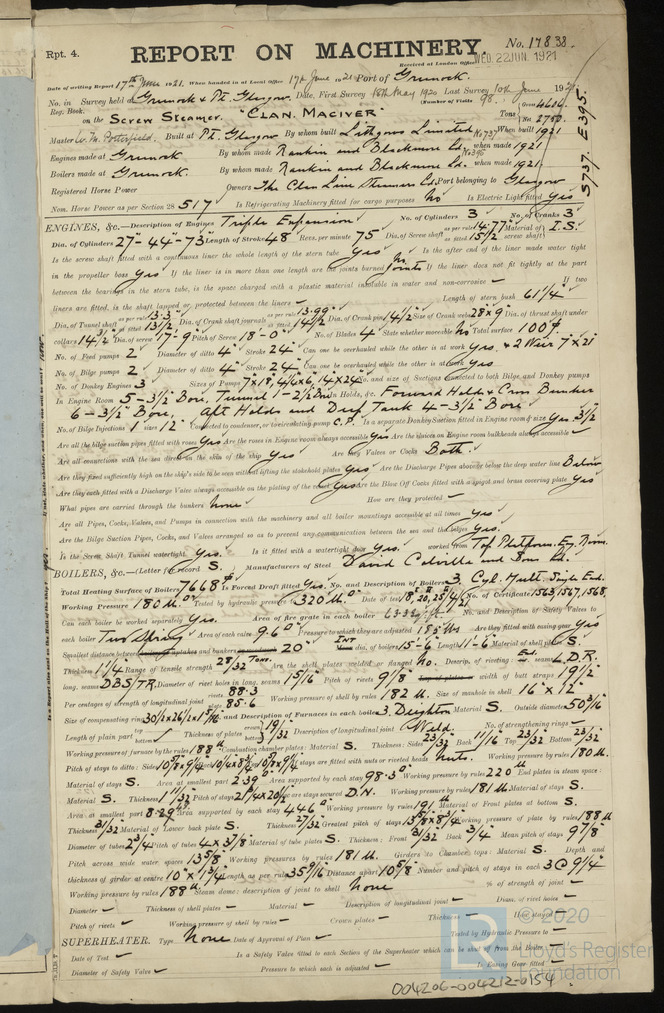 Rpt. 4.
REPORT ON MACHINERY.
No. 17838.
Received at London Office WED. 22 JUN. 1921
Date of writing Report 17th June 1921. When handed in at Local Office 17th June 1921 Port of Greenock.
No. in Survey held at Greenock & Pt. Glasgow. Date, First Survey 18th May 1920 Last Survey 10th June 1921
Reg. Book. (Number of Visits 96.)
on the Screw Steamer. "CLAN. MACIVER" Tons Gross 4606. Net 2750.
Master W. M. Porterfield. Built at Pt. Glasgow By whom built Lithgows Limited No 737 When built 1921
Engines made at Greenock By whom made Rankin and Blackmore Ld. No 395 when made 1921
Boilers made at Greenock. By whom made Rankin and Blackmore Ld. when made 1921.
Registered Horse Power Owners The Clan Line Steamers Ld. Port belonging to Glasgow
Nom. Horse Power as per Section 28 517 Is Refrigerating Machinery fitted for cargo purposes No Is Electric Light fitted Yes
S737. E395.
ENGINES, &c.—Description of Engines Triple Expansion No. of Cylinders 3 No. of Cranks 3
Dia. of Cylinders 27-44-73 Length of Stroke 48 Revs. per minute 75 Dia. of Screw shaft as per rule 14.77 as fitted 15 1/2 Material of screw shaft I.S.
Is the screw shaft fitted with a continuous liner the whole length of the stern tube Yes Is the after end of the liner made water tight
in the propeller boss Yes If the liner is in more than one length are the joints burned No joints If the liner does not fit tightly at the part
between the bearings in the stern tube, is the space charged with a plastic material insoluble in water and non-corrosive — If two
liners are fitted, is the shaft lapped or protected between the liners — Length of stern bush 61 1/4"
Dia. of Tunnel shaft as per rule 13.3 as fitted 13 1/2 Dia. of Crank shaft journals as per rule 13.99 as fitted 14 1/2 Dia. of Crank pin 14 1/2 Size of Crank webs 28 x 9 Dia. of thrust shaft under
collars 14 1/2 Dia. of screw 17-9 Pitch of Screw 18-0 No. of Blades 4 State whether moveable No Total surface 100
No. of Feed pumps 2 Diameter of ditto 4 Stroke 24 Can one be overhauled while the other is at work Yes. & 2 Weir 7 x 21
No. of Bilge pumps 2 Diameter of ditto 4 Stroke 24 Can one be overhauled while the other is at work Yes.
No. of Donkey Engines 3 Sizes of Pumps No. and size of Suctions connected to both Bilge and Donkey pumps
In Engine Room 5-3 1/2 Bore, Tunnel 1-2 1/2 In Holds, &c. Forward Holds & Cross Bunker
6-3 1/2 Bore, Aft Holds and Deep Tank 4-3 1/2 Bore.
No. of Bilge Injections 1 sizes 12" Connected to condenser, or to circulating pump C.P. Is a separate Donkey Suction fitted in Engine room & size Yes 3 1/2
Are all the bilge suction pipes fitted with roses Yes Are the roses in Engine room always accessible Yes Are the sluices on Engine room bulkheads always accessible
Are all connections with the sea direct on the skin of the ship Yes Are they Valves or Cocks Both
Are they fixed sufficiently high on the ship's side to be seen without lifting the stokehold plates Yes Are the Discharge Pipes above or below the deep water line Below
Are they each fitted with a Discharge Valve always accessible on the plating of the vessel Yes Are the Blow Off Cocks fitted with a spigot and brass covering plate Yes
What pipes are carried through the bunkers None How are they protected —
Are all Pipes, Cocks, Valves, and Pumps in connection with the machinery and all boiler mountings accessible at all times Yes
Are the Bilge Suction Pipes, Cocks, and Valves arranged so as to prevent any communication between the sea and the bilges Yes.
Is the Screw Shaft Tunnel watertight Yes. Is it fitted with a watertight door Yes. worked from Top Platform Eng. Room.
BOILERS, &c.—(Letter for record S. Manufacturers of Steel David Colville and Sons Ld.
Total Heating Surface of Boilers 7668 Is Forced Draft fitted Yes. No. and Description of Boilers 3. Cyl. Mult. Single End.
Working Pressure 180 Tested by hydraulic pressure to 320 Date of test No. of Certificate 1563, 1567, 1568.
Can each boiler be worked separately Yes. Area of fire grate in each boiler No. and Description of Safety Valves to
each boiler Two Spring Area of each valve 9.6 Pressure to which they are adjusted 185 lbs Are they fitted with easing gear Yes
Smallest distance between 20" INT dia. of boilers 15-6 Length 11-6 Material of shell plates S.
Thickness 1 1/4 Range of tensile strength 28/32 TONS. Are the shell plates welded or flanged No. Descrip. of riveting: seams L.D.R.
long. seams DBS/TR. Diameter of rivet holes in long. seams 1 5/16 Pitch of rivets 9 1/8 width of butt straps 19 1/2
Per centages of strength of longitudinal joint rivets 88.3 plate 85.6 Working pressure of shell by rules 182 Size of manhole in shell 16" x 12"
Size of compensating ring No. and Description of Furnaces in each boiler 3. Deighton Material S. Outside diameter 50 3/16
Length of plain part top bottom Thickness of plates 19/32 Description of longitudinal joint Weld No. of strengthening rings —
Working pressure of furnace by the rules 188 Combustion chamber plates: Material S. Thickness: Sides 23/32 Back 11/16 Top 23/32 Bottom 23/32
Pitch of stays to ditto: Sides If stays are fitted with nuts or riveted heads Nuts. Working pressure by rules 180
Material of stays S. Area at smallest part 2.39 Area supported by each stay 98.3 Working pressure by rules 220 End plates in steam space:
Material S. Thickness 1 11/32 Pitch of stays How are stays secured D.N. Working pressure by rules 181 Material of stays S.
Area at smallest part 8.29 Area supported by each stay 446 Working pressure by rules 191 Material of Front plates at bottom S.
Thickness 31/32 Material of Lower back plate S. Thickness 27/32 Greatest pitch of stays Working pressure of plate by rules 188
Diameter of tubes 2 3/4 Pitch of tubes 4 x 3 7/8 Material of tube plates S. Thickness: Front 31/32 Back 3/4 Mean pitch of stays 9 7/8
Pitch across wide water spaces 13 5/8 Working pressures by rules 181 Girders to Chamber tops: Material S. Depth and
thickness of girder at centre 10" x 1 3/4 Length as per rule 35 9/16 Distance apart 10 5/8 Number and pitch of stays in each 3 @ 9 1/4
Working pressure by rules 188 Steam dome: description of joint to shell None % of strength of joint —
Diameter — Thickness of shell plates — Material — Description of longitudinal joint — Diam. of rivet holes —
Pitch of rivets — Working pressure of shell by rules — Crown plates — Thickness — How stayed —
SUPERHEATER. Type None Date of Approval of Plan — Tested by Hydraulic Pressure to —
Date of Test — Is a Safety Valve fitted to each Section of the Superheater which can be shut off from the Boiler —
Diameter of Safety Valve — Pressure to which each is adjusted — Is Easing Gear fitted —
© 2020
Lloyd's Register
Foundation
004206-004212-0154